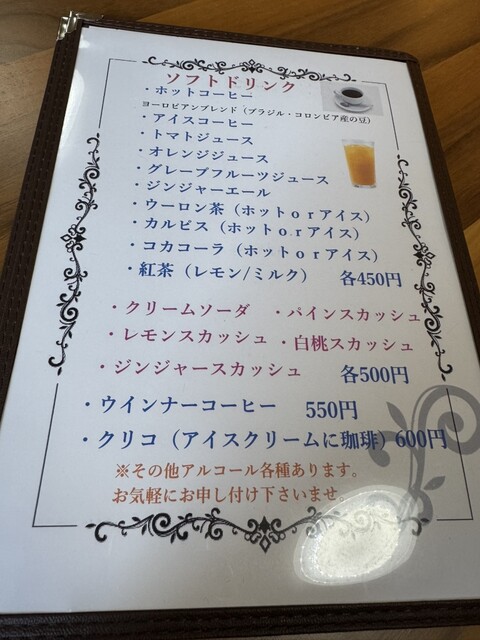 ソフトドリンク
・ホットコーヒー
ヨーロピアンブレンド（ブラジル・コロンビア産の豆）
・アイスコーヒー
・トマトジュース
・オレンジジュース
・グレープフルーツジュース
・ジンジャーエール
・ウーロン茶（ホットｏｒアイス）
・カルピス（ホットｏｒアイス）
・コカコーラ（ホットｏｒアイス）
・紅茶（レモン/ミルク） 各450円
・クリームソーダ ・パインスカッシュ
・レモンスカッシュ ・白桃スカッシュ
・ジンジャースカッシュ 各500円
・ウインナーコーヒー 550円
・クリコ（アイスクリームに珈琲）600円
※その他アルコール各種あります。
お気軽にお申し付け下さいませ。